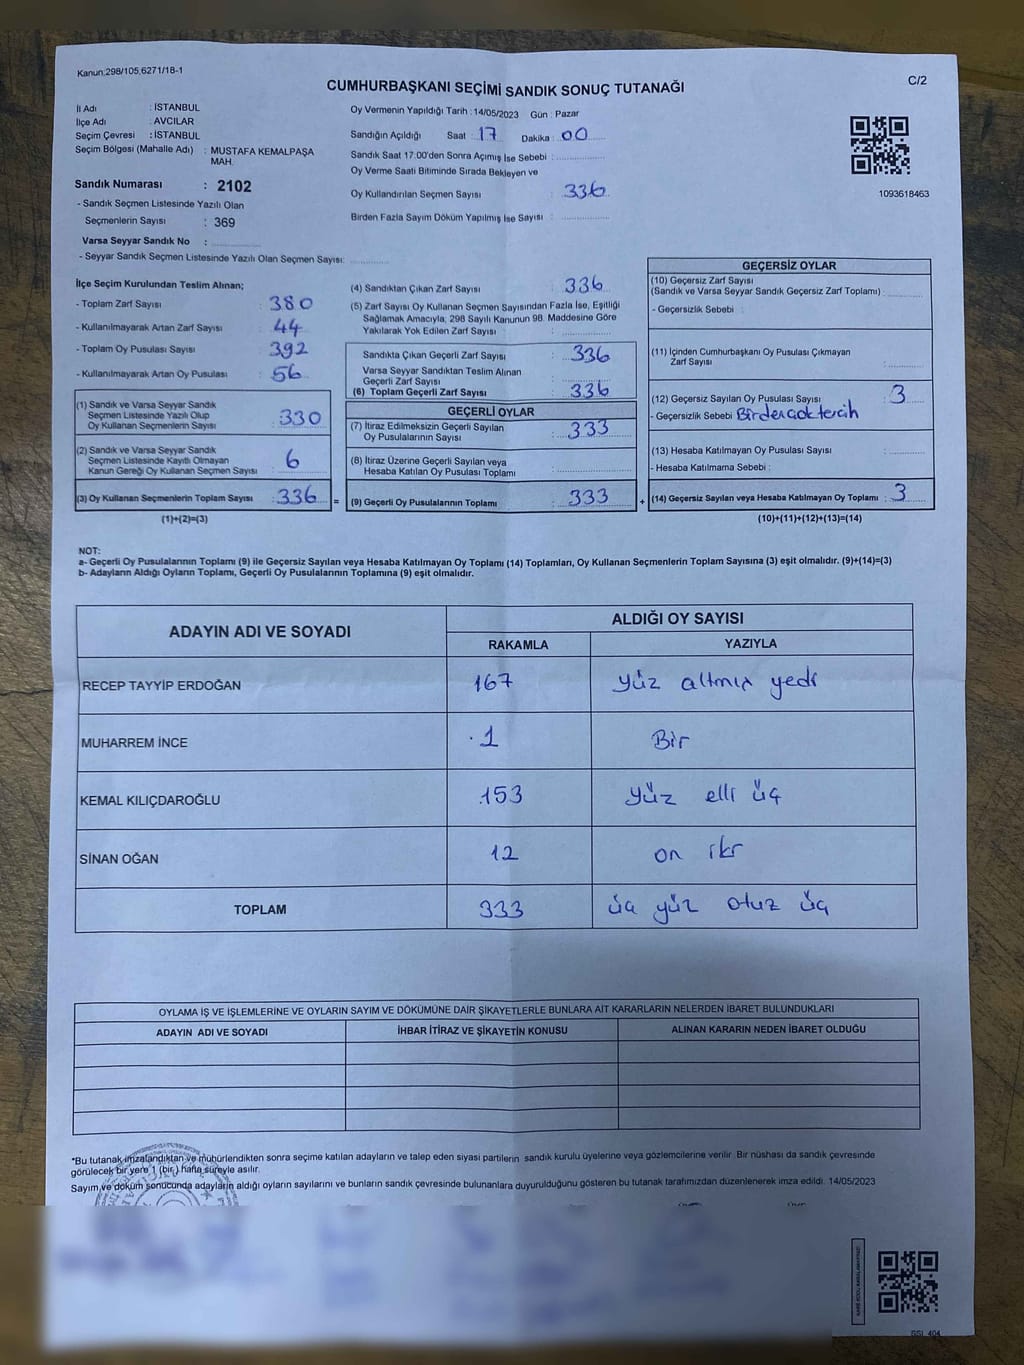 Kanun:298/105,6271/18-1
CUMHURBAŞKANI SEÇİMİ SANDIK SONUÇ TUTANAĞI
C/2
İl Adı : İSTANBUL
İlçe Adı : AVCILAR
Seçim Çevresi : İSTANBUL
Seçim Bölgesi (Mahalle Adı) : MUSTAFA KEMALPAŞA MAH.
Sandık Numarası : 2102
- Sandık Seçmen Listesinde Yazılı Olan
Seçmenlerin Sayısı : 369
Varsa Seyyar Sandık No :
- Seyyar Sandık Seçmen Listesinde Yazılı Olan Seçmen Sayısı:
Oy Vermenin Yapıldığı Tarih : 14/05/2023 Gün : Pazar
Sandığın Açıldığı Saat : 17 Dakika : 00
Sandık Saat 17:00'den Sonra Açımış İse Sebebi :
Oy Verme Saati Bitiminde Sırada Bekleyen ve
Oy Kullandırılan Seçmen Sayısı : 336
Birden Fazla Sayım Döküm Yapılmış İse Sayısı :
1093618463
İlçe Seçim Kurulundan Teslim Alınan;
- Toplam Zarf Sayısı : 380
- Kullanılmayarak Artan Zarf Sayısı : 44
- Toplam Oy Pusulası Sayısı : 392
- Kullanılmayarak Artan Oy Pusulası : 56
(1) Sandık ve Varsa Seyyar Sandık
Seçmen Listesinde Yazılı Olup
Oy Kullanan Seçmenlerin Sayısı : 330
(2) Sandık ve Varsa Seyyar Sandık
Seçmen Listesinde Kayıtlı Olmayan
Kanun Gereği Oy Kullanan Seçmen Sayısı : 6
(3) Oy Kullanan Seçmenlerin Toplam Sayısı : 336 =
(1)+(2)=(3)
(4) Sandıktan Çıkan Zarf Sayısı : 336
(5) Zarf Sayısı Oy Kullanan Seçmen Sayısından Fazla İse, Eşitliği
Sağlamak Amacıyla; 298 Sayılı Kanunun 98. Maddesine Göre
Yakılarak Yok Edilen Zarf Sayısı :
Sandıkta Çıkan Geçerli Zarf Sayısı : 336
Varsa Seyyar Sandıktan Teslim Alınan
Geçerli Zarf Sayısı :
(6) Toplam Geçerli Zarf Sayısı : 336
GEÇERLİ OYLAR
(7) İtiraz Edilmeksizin Geçerli Sayılan
Oy Pusulalarının Sayısı : 333
(8) İtiraz Üzerine Geçerli Sayılan veya
Hesaba Katılan Oy Pusulası Toplamı :
(9) Geçerli Oy Pusulalarının Toplamı : 333 +
GEÇERSİZ OYLAR
(10) Geçersiz Zarf Sayısı
(Sandık ve Varsa Seyyar Sandık Geçersiz Zarf Toplamı) :
- Geçersizlik Sebebi :
(11) İçinden Cumhurbaşkanı Oy Pusulası Çıkmayan
Zarf Sayısı :
(12) Geçersiz Sayılan Oy Pusulası Sayısı : 3
- Geçersizlik Sebebi : Birden çok tercih
(13) Hesaba Katılmayan Oy Pusulası Sayısı :
- Hesaba Katılmama Sebebi :
(14) Geçersiz Sayılan veya Hesaba Katılmayan Oy Toplamı : 3
(10)+(11)+(12)+(13)=(14)
NOT:
a- Geçerli Oy Pusulalarının Toplamı (9) ile Geçersiz Sayılan veya Hesaba Katılmayan Oy Toplamı (14) Toplamları, Oy Kullanan Seçmenlerin Toplam Sayısına (3) eşit olmalıdır. (9)+(14)=(3)
b- Adayların Aldığı Oyların Toplamı, Geçerli Oy Pusulalarının Toplamına (9) eşit olmalıdır.
ADAYIN ADI VE SOYADI ALDIĞI OY SAYISI
RAKAMLA YAZIYLA
RECEP TAYYİP ERDOĞAN 167 yüz altmış yedi
MUHARREM İNCE 1 Bir
KEMAL KILIÇDAROĞLU 153 yüz elli üç
SİNAN OĞAN 12 on iki
TOPLAM 333 üç yüz otuz üç
OYLAMA İŞ VE İŞLEMLERİNE VE OYLARIN SAYIM VE DÖKÜMÜNE DAİR ŞİKAYETLERLE BUNLARA AİT KARARLARIN NELERDEN İBARET BULUNDUKLARI
ADAYIN ADI VE SOYADI İHBAR İTİRAZ VE ŞİKAYETİN KONUSU ALINAN KARARIN NEDEN İBARET OLDUĞU
*Bu tutanak imzalandıktan ve mühürlendikten sonra seçime katılan adayların ve talep eden siyasi partilerin sandık kurulu üyelerine veya gözlemcilerine verilir. Bir nüshası da sandık çevresinde
görülecek bir yere 1 (bir ) hafta süreyle asılır.
Sayım ve döküm sonucunda adayların aldığı oyların sayılarını ve bunların sandık çevresinde bulunanlara duyurulduğunu gösteren bu tutanak tarafımızdan düzenlenerek imza edildi. 14/05/2023